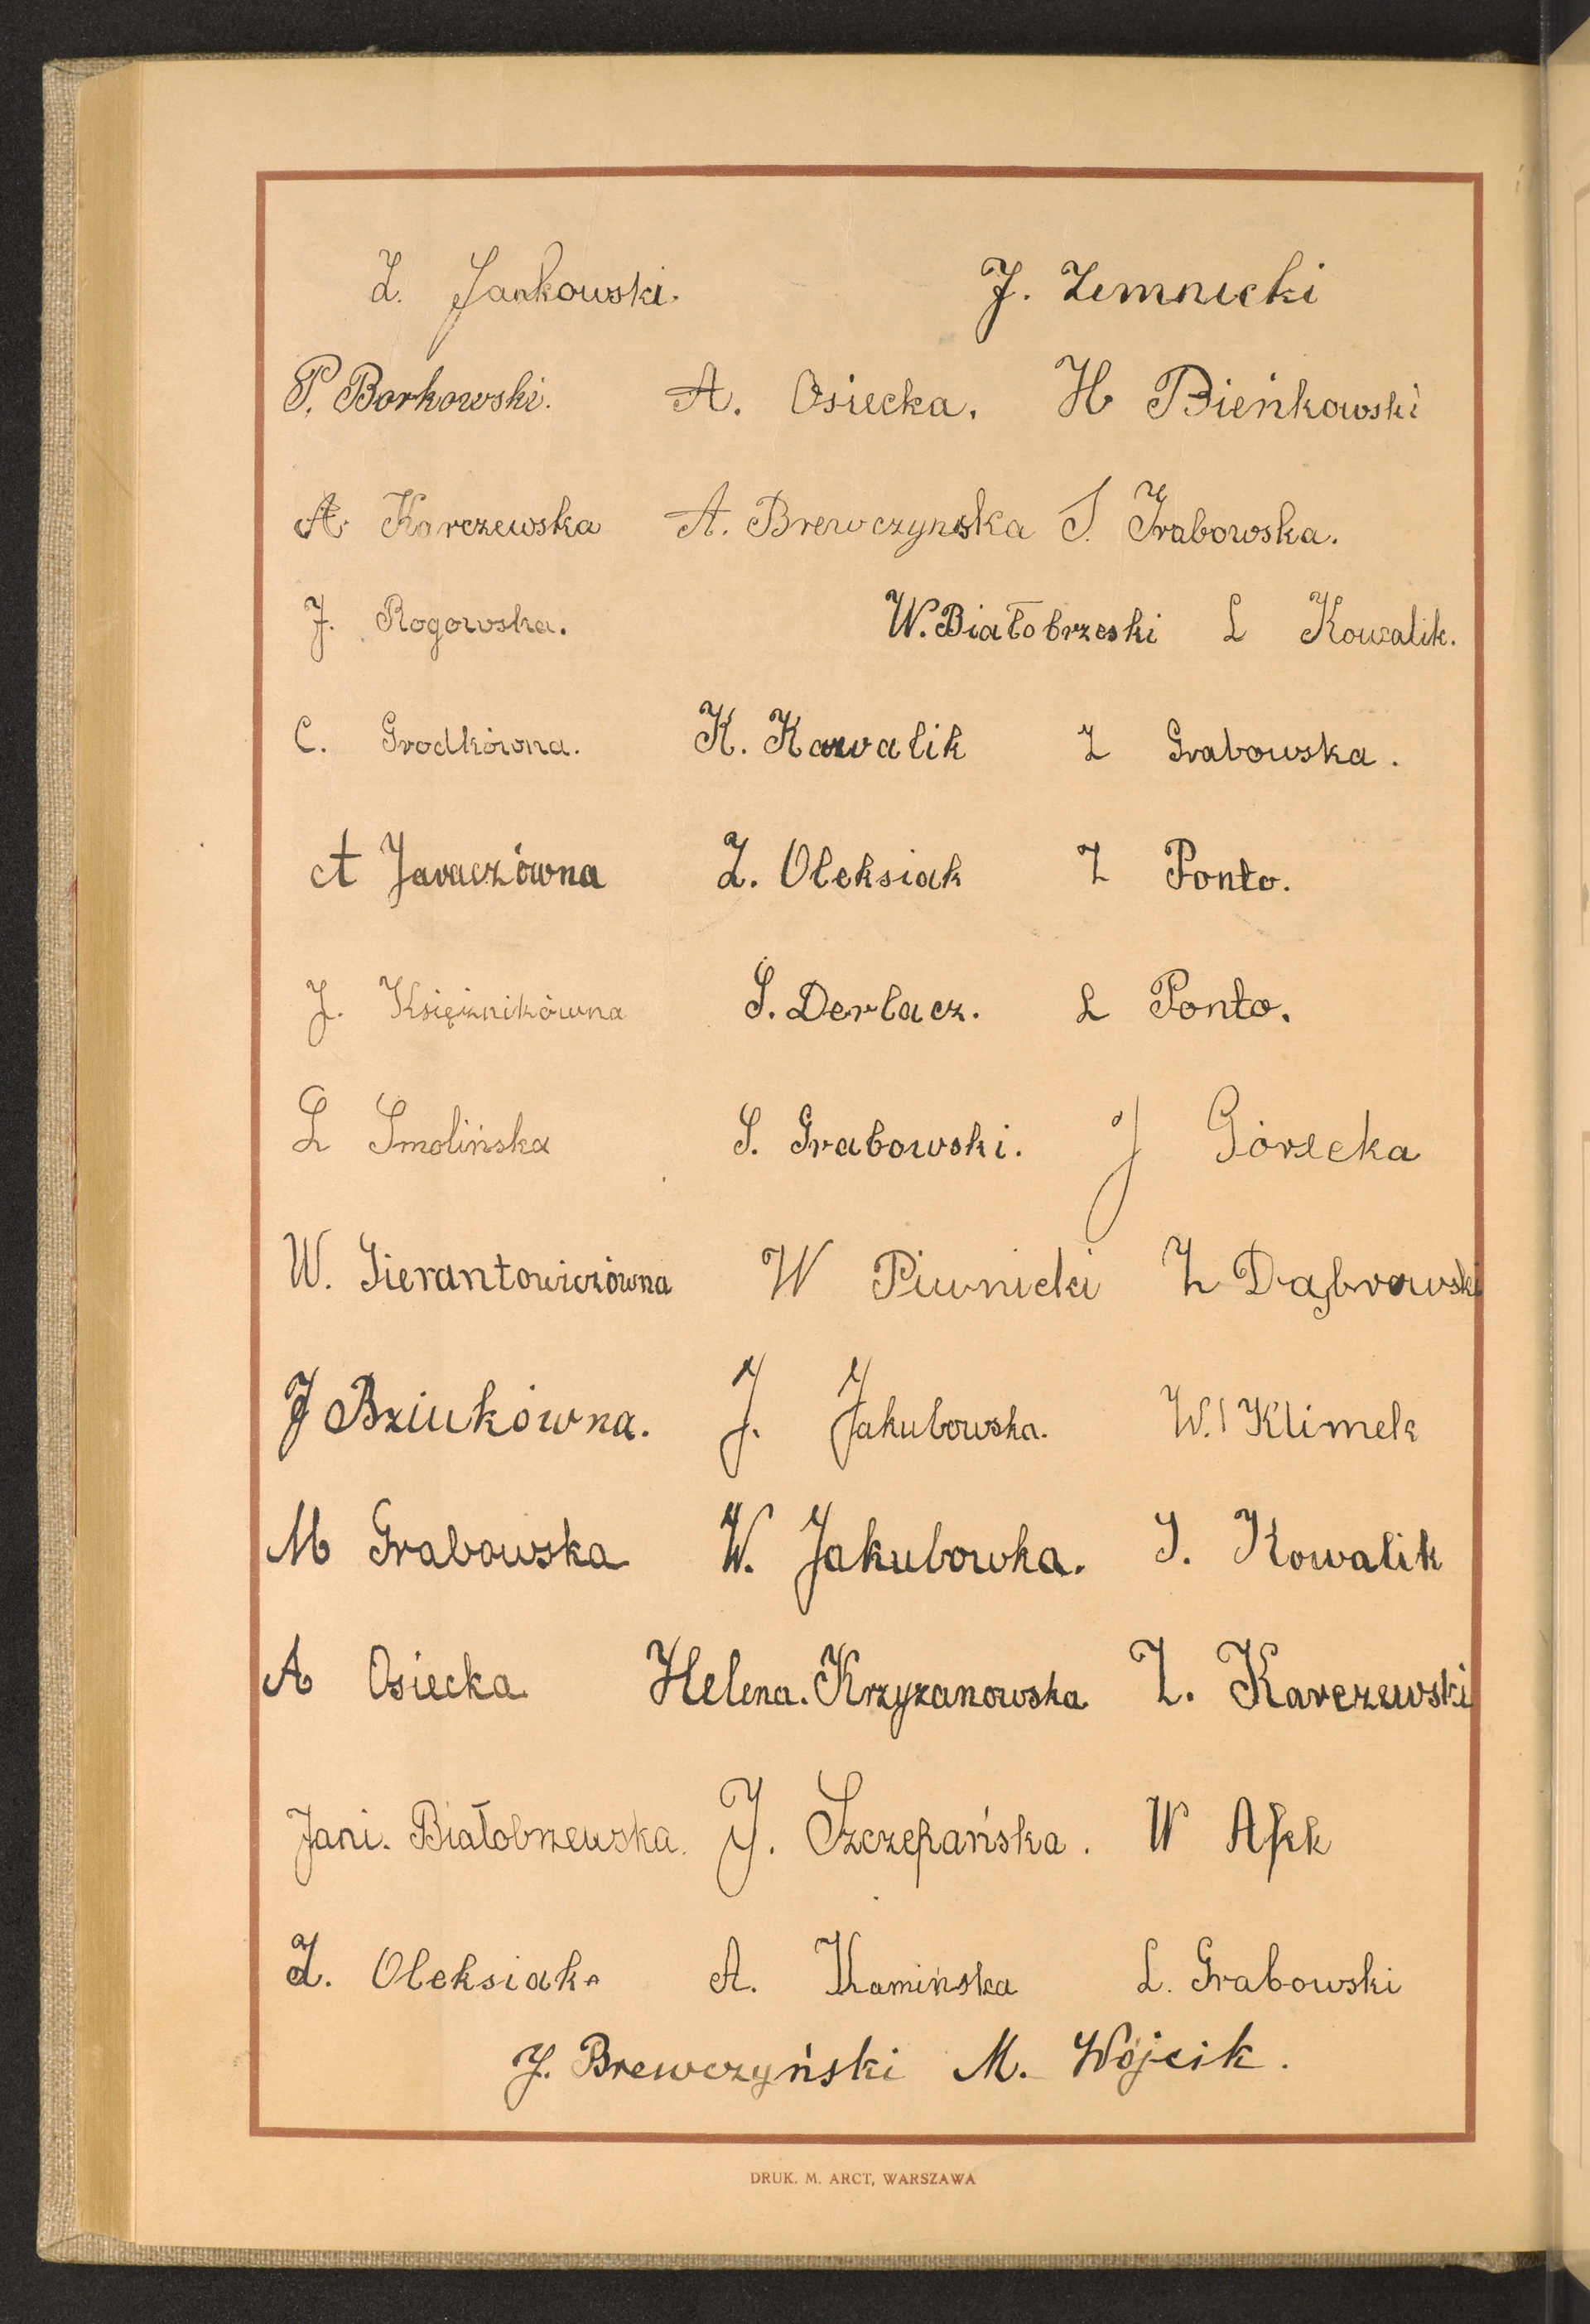 Z. Jankowski. J. Zemnicki
P. Borkowski. A. Osiecka. H Bieńkowski
A Karczewska A. Brewczynska S. Grabowska.
J. Rogowska. W. Białobrzeski L Kowalik.
C. Grodkówna. K. Kowalik Z Grabowska.
A Javaczówna Z. Oleksiak Z Ponto.
J. Księżnikówna S. Derlacz. L Ponto.
L Smolińska S. Grabowski. J Górecka
W. Gierantowiczówna W Piwnicki Z Dąbrowski
J Bziukówna. J. Jakubowska. W. Klimek
M Grabowska W. Jakubowka. S. Kowalik
A Osiecka Helena. Krzyzanowska Z. Karczewski
Jani. Białobrzewska. J. Szczepańska. W
Z. Oleksiak. A. Kamińska L. Grabowski
J. Brewczyński M. Wójcik.
DRUK. M. ARCT, WARSZAWA